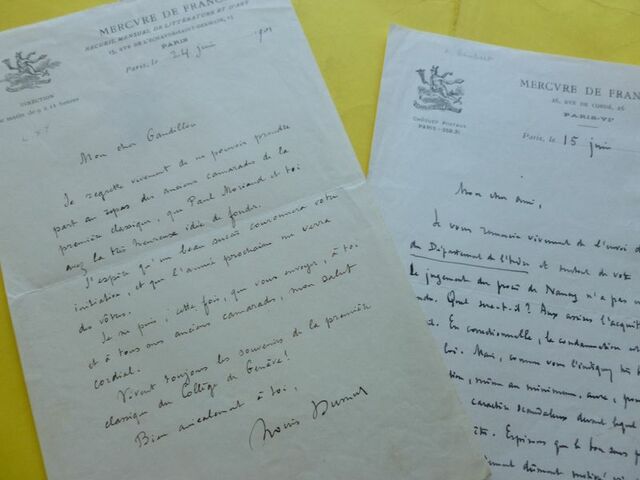 MERCVRE DE FRANCE
RECUEIL MENSUEL DE LITTÉRATURE ET D'ART
15, RUE DE L'ÉCHAUDÉ-SAINT-GERMAIN, 15
PARIS
Paris, le 24 juin 190
DIRECTION
matin de 9 à 11 heures
Mon cher Gandillon
Je regrette vivement de ne pouvoir prendre
part au repas des anciens camarades de la
première classique, que Paul Moriaud et toi
avez la très heureuse idée de fonder.
J'espère qu'un beau succès couronnera votre
initiative, et que l'année prochaine me verra
des vôtres.
Je ne puis, cette fois, que vous envoyer, à toi
et à tous nos anciens camarades, mon salut
cordial.
Vivent toujours les souvenirs de la première
classique du Collège de Genève!
Bien amicalement à toi,
Louis Dumur
MERCVRE DE FRAN
26, RUE DE CONDÉ, 26
PARIS-VIe
CHÈQUES POSTAUX
PARIS-259.31
Paris, le 15 juin
Mon cher ami,
Je vous remercie vivement de l'envoi d
du Département de l'Isère et surtout de votre
Le jugement du procès de Nancy n'a pas
Quel sera-t-il? Aux assises l'acquit
En correctionnelle, la condamnation est
loi. Mais, comme vous l'indiquez très
tion, même au minimum, aura, pour
caractère scandaleux devant lequel
Espérons que le bon sens
dûment motivé